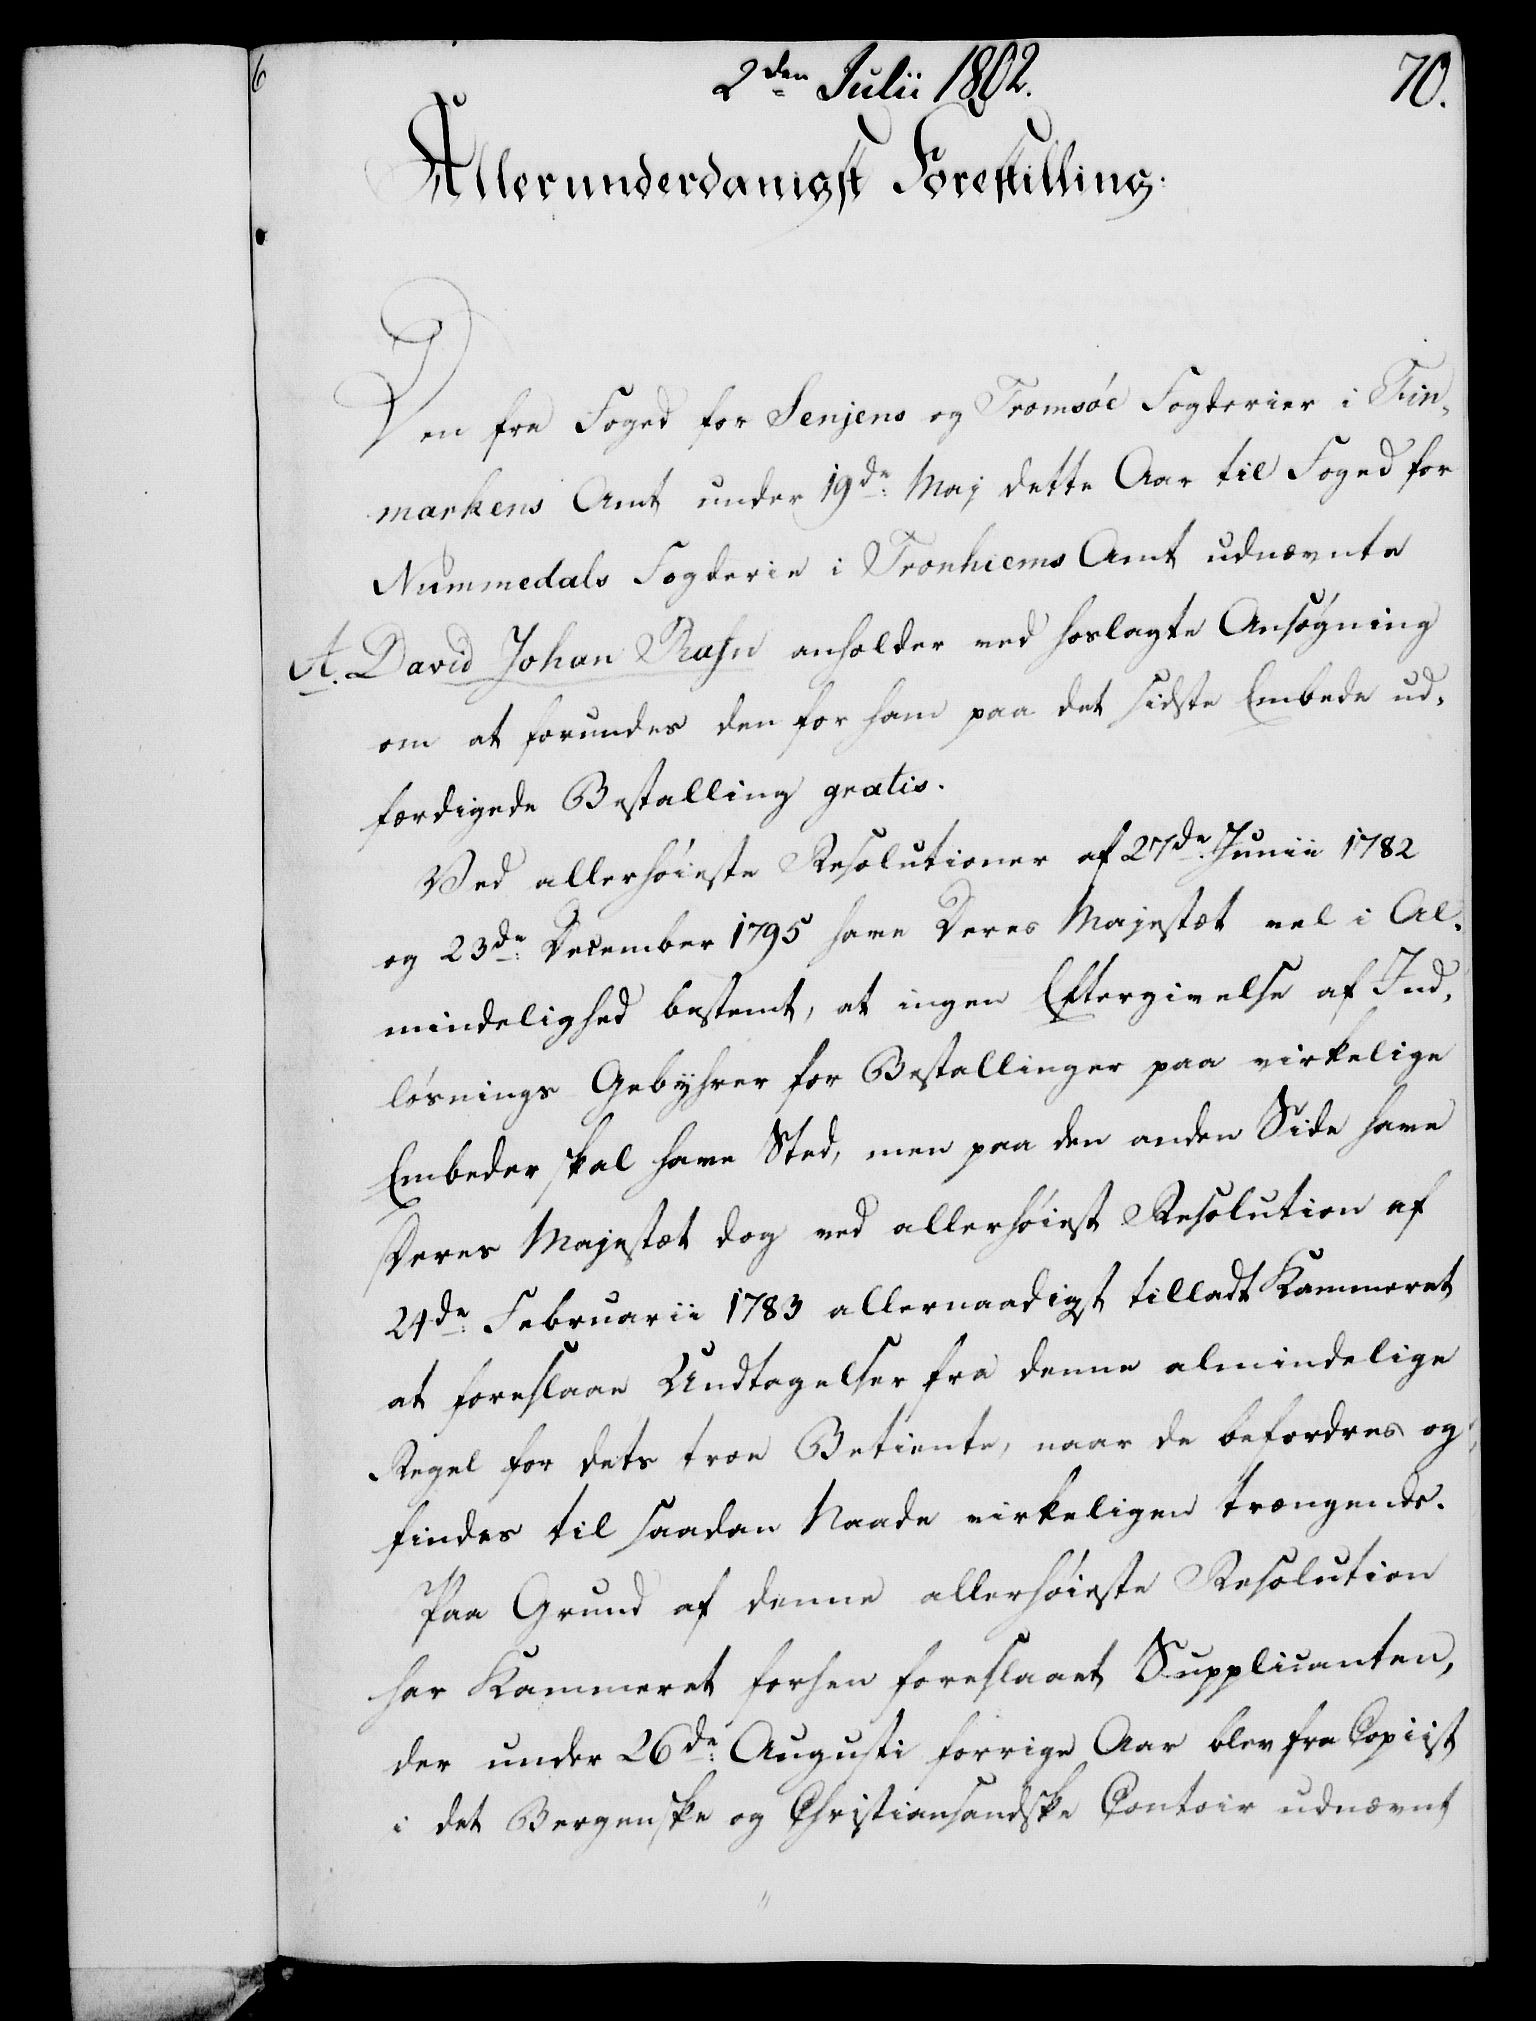 2den Julii 1802.
70.
Allerunderdanigst Forestilling.
Den fra Foged for Senjens og Tromsöe Fogderier i Fin-
markens Amt under 19de Maj dette Aar til Foged for
Nummedals Fogderie i Tronhiems Amt udnævnte
A. David Johan Rahn anholder ved hoslagte Ansøgning
om at forundes den for ham paa det sidste Embede ud-
færdigede Bestalling gratis.
Ved allerhöieste Resolutioner af 27de Junii 1782
og 23de December 1795 have Deres Majestæt vel i Al-
mindelighed bestemt, at ingen Eftergivelse af Ind-
lösnings Gebyhrer for Bestallinger paa virkelige
Embeder skal have Sted, men paa den anden Side have
Deres Majestæt dog ved allerhöiest Resolution af
24de Februarii 1783 allernaadigst tilladt Kammeret
at foreslaae Undtagelser fra denne almindelige
Regel for dets troe Betiente, naar de befordres og
findes til saadan Naade virkeligen trængende.
Paa Grund af denne allerhöieste Resolution
har Kammeret forhen foreslaaet Supplicanten,
der under 26de Augusti forrige Aar blev fra Copiist
i det Bergenske og Christiansandske Contoir udnævnt